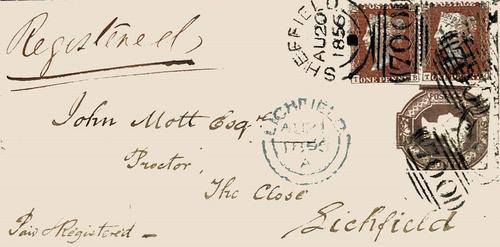 Registered
SHEFFIELD
AU 20
1856
ONE PENNY
700
John Mott Esqre
LICHFIELD
AU 21
1856
A
Proctor,
The Close
Lichfield
Paid & Registered
700